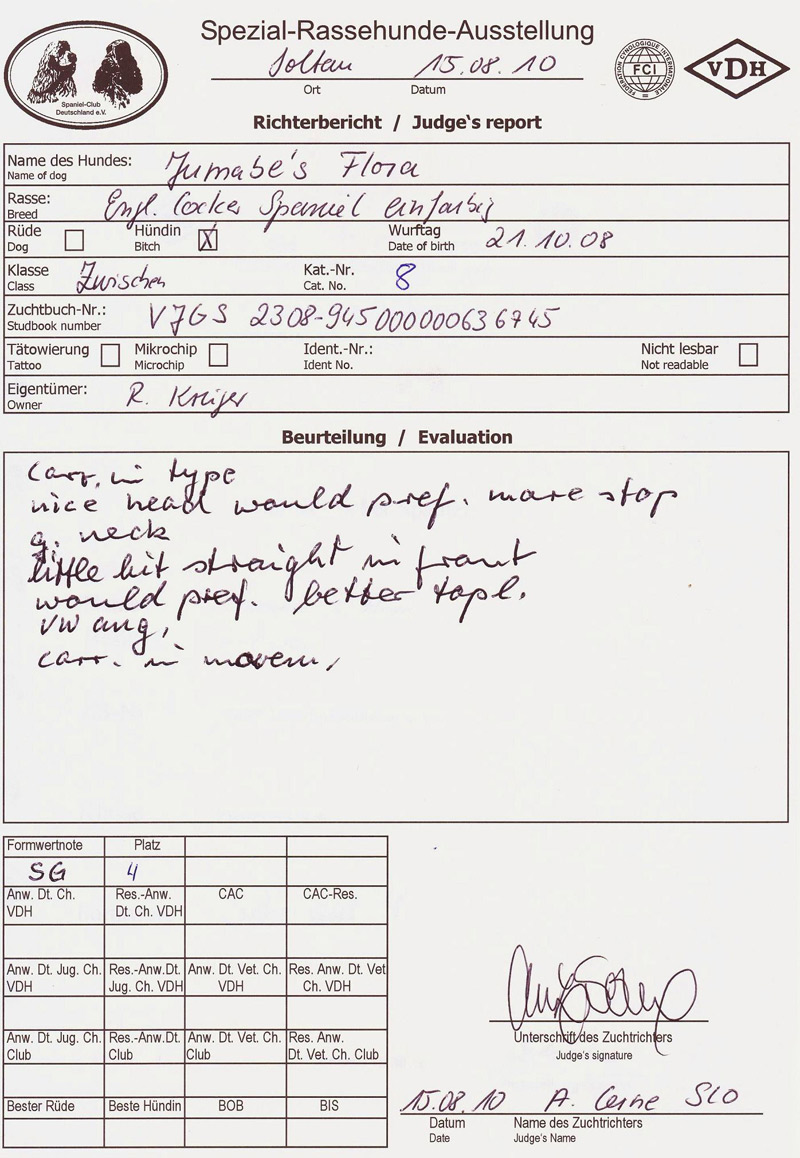 Spezial-Rassehunde-Ausstellung
Soltau 15.08.10
Ort Datum
Spaniel-Club
Deutschland e.V.
FEDERATION CYNOLOGIQUE INTERNATIONALE
FCI
VDH
Richterbericht / Judge's report
Name des Hundes: Jumabe's Flora
Name of dog
Rasse: Engl. Cocker Spaniel einfarbig
Breed
Rüde Hündin X Wurftag 21.10.08
Dog Bitch Date of birth
Klasse Zwischen Kat.-Nr. 8
Class Cat. No.
Zuchtbuch-Nr.: VJGS 2308-945000000636745
Studbook number
Tätowierung Mikrochip Ident.-Nr.: Nicht lesbar
Tattoo Microchip Ident No. Not readable
Eigentümer: R. Krüger
Owner
Beurteilung / Evaluation
corr. in type
nice head would pref. more stop
g. neck
little bit straight in front
would pref. better topl.
VW ang,
corr. in movem,
Formwertnote Platz
SG 4
Anw. Dt. Ch. Res.-Anw. CAC CAC-Res.
VDH Dt. Ch. VDH
Anw. Dt. Jug. Ch. Res.-Anw.Dt. Anw. Dt. Vet. Ch. Res. Anw. Dt. Vet
VDH Jug. Ch. VDH VDH Ch. VDH
Anw. Dt. Jug. Ch. Res.-Anw.Dt. Anw. Dt. Vet. Ch. Res. Anw.
Club Club Club Dt. Vet. Ch. Club
Bester Rüde Beste Hündin BOB BIS
Unterschrift des Zuchtrichters
Judge's signature
15.08.10 A. Cerne SLO
Datum Name des Zuchtrichters
Date Judge's Name